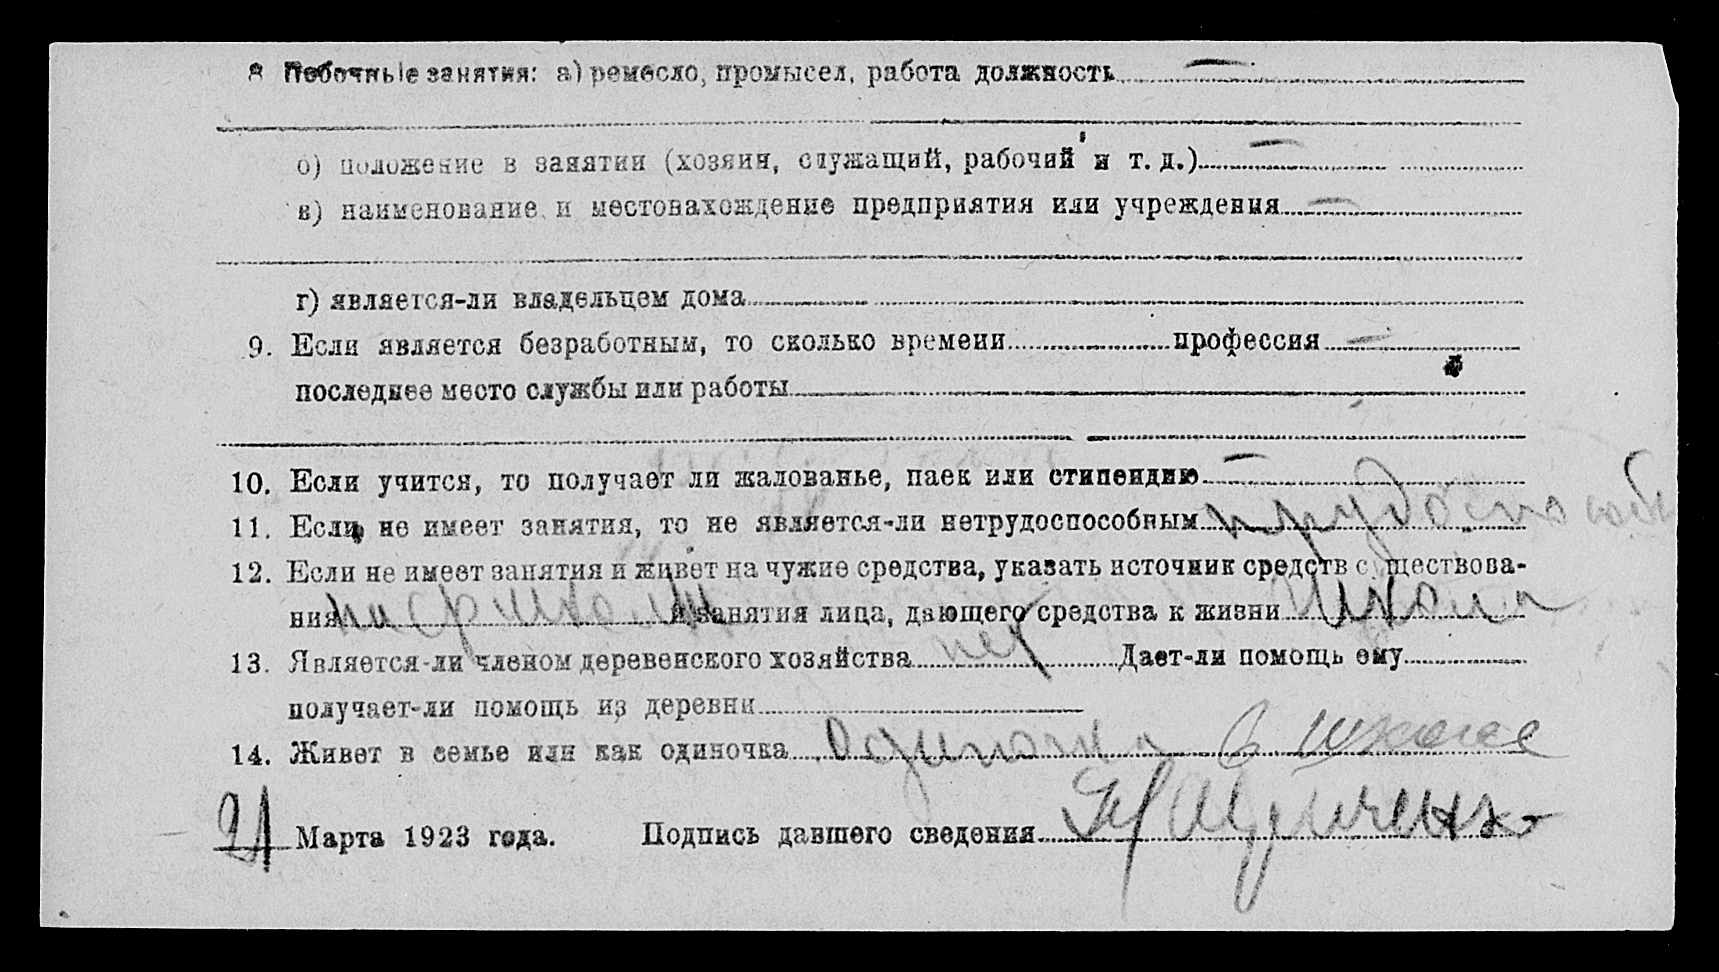 8 Побочные занятия: а) ремесло, промысел, работа должность —
б) положение в занятии (хозяин, служащий, рабочий и т. д.) —
в) наименование и местонахождение предприятия или учреждения —
г) является-ли владельцем дома
9. Если является безработным, то сколько времени профессия —
последнее место службы или работы
10. Если учится, то получает ли жалованье, паек или стипендию —
11. Если не имеет занятия, то не является-ли нетрудоспособным трудоспособ
12. Если не имеет занятия и живет на чужие средства, указать источник средств существова-
ния и занятия лица, дающего средства к жизни школа
13. Является-ли членом деревенского хозяйства нет Дает-ли помощь ему
получает-ли помощь из деревни
14. Живет в семье или как одиночка одиночка в школе
21 Марта 1923 года. Подпись давшего сведения